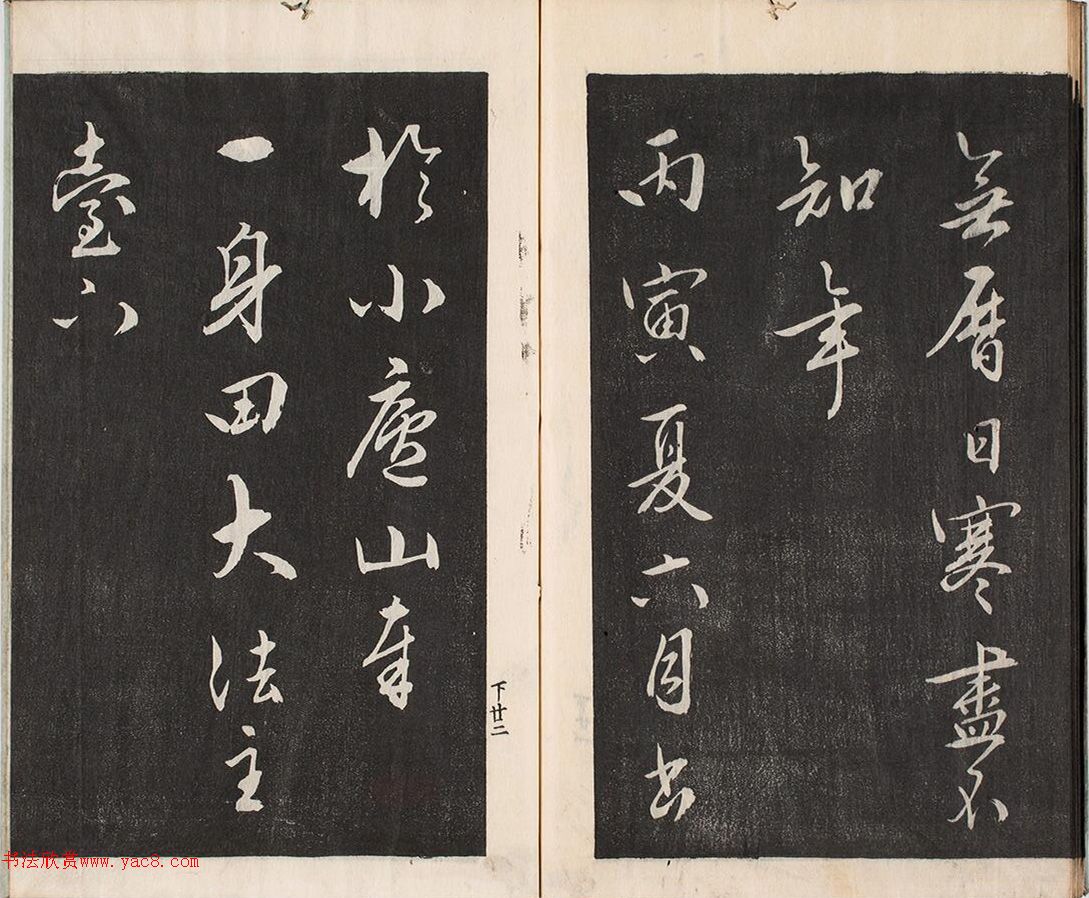 無暦日寒盡不
知年
丙寅夏六月書
於小廬山奉
一身田大法主
臺下
下廿二
书法欣赏www.yac8.com